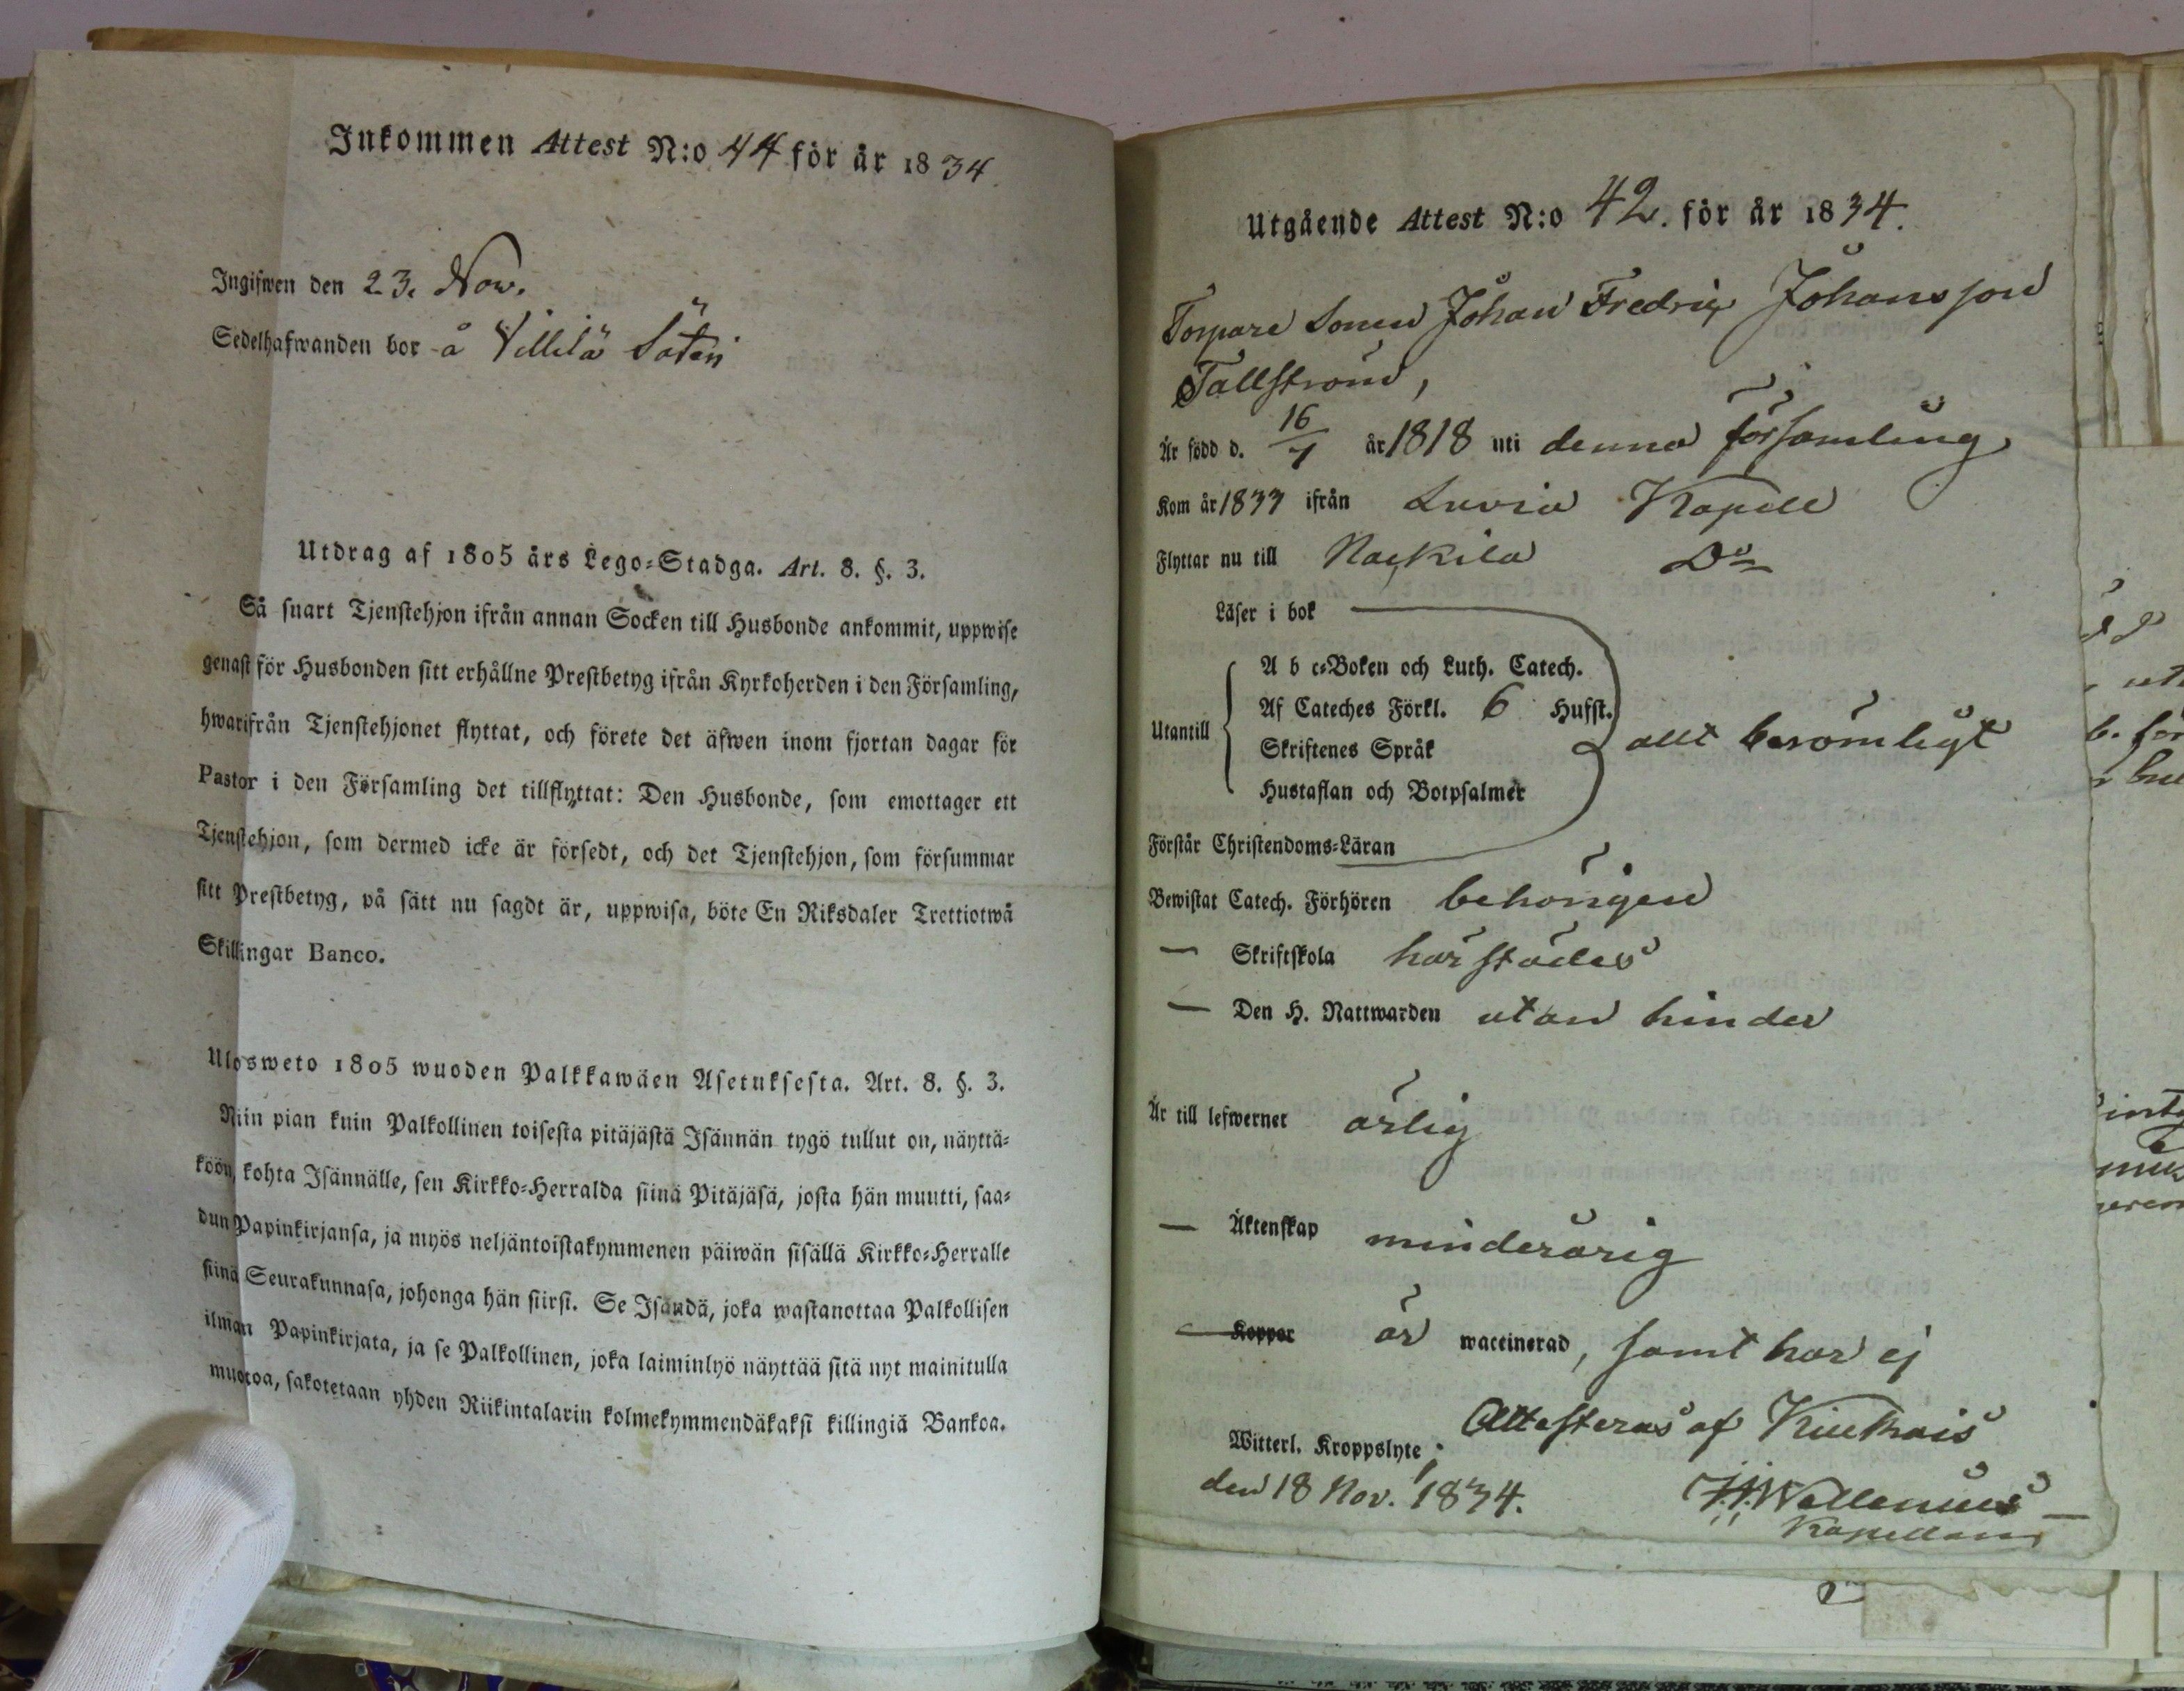 Inkommen Attest N:o 44 för år 1834
Ingifwen den 23. Nov.
Sedelhafwanden bor å Villilä Säteri
Utdrag af 1805 års Lego-Stadga. Art. 8. §. 3.
Så snart Tjenstehjon ifrån annan Socken till Husbonde ankommit, uppwise
genast för Husbonden sitt erhållne Prestbetyg ifrån Kyrkoherden i den Församling,
hwarifrån Tjenstehjonet flyttat, och förete det äfwen inom fjortan dagar för
Pastor i den Församling det tillflyttat: Den Husbonde, som emottager ett
Tjenstehjon, som dermed icke är försedt, och det Tjenstehjon, som försummar
sitt Prestbetyg, på sätt nu sagdt är, uppwisa, böte En Riksdaler Trettiotwå
Skillingar Banco.
Ulosweto 1805 wuoden Palkkawäen Asetuksesta. Art. 8. §. 3.
Niin pian kuin Palkollinen toisesta pitäjästä Isännän tygö tullut on, näyttä-
köön, kohta Isännälle, sen Kirkko-Herralda siinä Pitäjäsä, josta hän muutti, saa-
dun Papinkirjansa, ja myös neljäntoistakymmenen päiwän sisällä Kirkko-Herralle
siinä Seurakunnasa, johonga hän siirsi. Se Isändä, joka wastanottaa Palkollisen
ilman Papinkirjata, ja se Palkollinen, joka laiminlyö näyttää sitä nyt mainitulla
muotoa, sakotetaan yhden Riikintalarin kolmekymmendäkaksi killingiä Bankoa.
Utgående Attest N:o 42. för år 1834.
Torpare Sonen Johan Fredric Johansson
Tallström,
Är född d. 16/7 år 1818 uti denna församling
Kom år 1833 ifrån Luvia Kapell
Flyttar nu till Nackila Do
Läser i bok
Utantill
A b c-Boken och Luth. Catech.
Af Cateches Förkl. 6 Hufst.
Skriftenes Språk allt berömligt
Hustaflan och Botpsalmer
Förstår Christendoms-Läran
Bewistat Catech. Förhören behörigen
— Skriftskola härstädes
— Den H. Nattwarden utan hinder
Är till lefwernet ärlig
— Äktenskap minderårig
— Koppor är waccinerad, samt har ej
Witterl. Kroppslyte; Attesteras af Kiukais
den 18 Nov. 1834. Wallenius
Kapellan